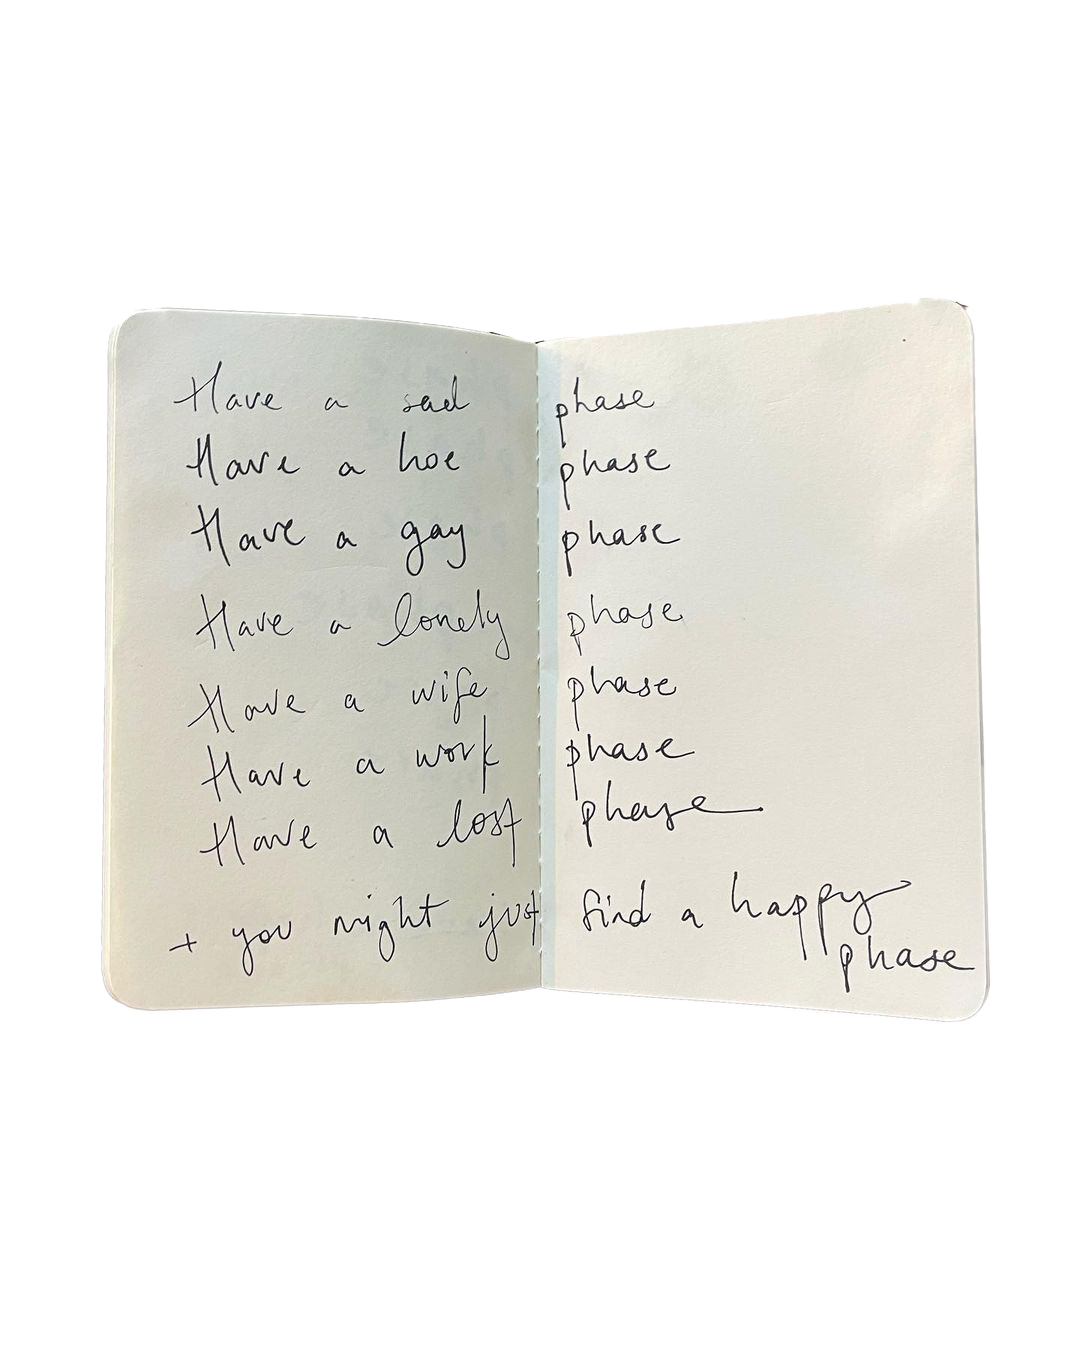 Have a sad phase
Have a hoe phase
Have a gay phase
Have a lonely phase
Have a wife phase
Have a work phase
Have a lost phase
+ you might just find a happy
phase